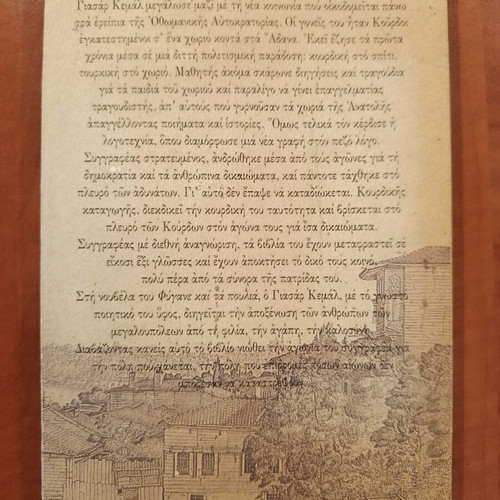 Γιασὰρ Κεμὰλ μεγάλωσε μαζὶ μὲ τὴ νέα κοινωνία ποὺ οἰκοδομεῖται πάνω
στὰ ἐρείπια τῆς Ὀθωμανικῆς Αὐτοκρατορίας. Οἱ γονεῖς του ἦταν Κοῦρδοι
ἐγκατεστημένοι σ' ἕνα χωριὸ κοντὰ στὰ Ἄδανα. Ἐκεῖ ἔζησε τὰ πρῶτα
χρόνια μέσα σὲ μιὰ διττὴ πολιτισμικὴ παράδοση: κουρδικὴ στὸ σπίτι,
τουρκικὴ στὸ χωριό. Μαθητὴς ἀκόμα σκάρωνε διηγήσεις καὶ τραγούδια
γιὰ τὰ παιδιὰ τοῦ χωριοῦ καὶ παραλίγο νὰ γίνει ἐπαγγελματίας
τραγουδιστής, ἀπ' αὐτοὺς ποὺ γυρνοῦσαν τὰ χωριὰ τῆς Ἀνατολῆς
ἀπαγγέλλοντας ποιήματα καὶ ἱστορίες. Ὅμως τελικὰ τὸν κέρδισε ἡ
λογοτεχνία, ὅπου διαμόρφωσε μιὰ νέα γραφὴ στὸν πεζὸ λόγο.
Συγγραφέας στρατευμένος, ἀνδρώθηκε μέσα ἀπὸ τοὺς ἀγῶνες γιὰ τὴ
δημοκρατία καὶ τὰ ἀνθρώπινα δικαιώματα, καὶ πάντοτε τάχθηκε στὸ
πλευρὸ τῶν ἀδυνάτων. Γι' αὐτὸ δὲν ἔπαψε νὰ καταδιώκεται. Κουρδικῆς
καταγωγῆς, διεκδικεῖ τὴν κουρδική του ταυτότητα καὶ βρίσκεται στὸ
πλευρὸ τῶν Κούρδων στὸν ἀγώνα τους γιὰ ἴσα δικαιώματα.
Συγγραφέας μὲ διεθνὴ ἀναγνώριση, τὰ βιβλία του ἔχουν μεταφραστεῖ σὲ
εἴκοσι ἕξι γλῶσσες καὶ ἔχουν ἀποκτήσει τὸ δικό τους κοινό,
πολὺ πέρα ἀπὸ τὰ σύνορα τῆς πατρίδας του.
Στὴ νουβέλα του Φύγανε καὶ τὰ πουλιά, ὁ Γιασὰρ Κεμάλ, μὲ τὸ γνωστὸ
ποιητικό του ὕφος, διηγεῖται τὴν ἀποξένωση τῶν ἀνθρώπων τῶν
μεγαλουπόλεων ἀπὸ τὴ φιλία, τὴν ἀγάπη, τὴν καλοσύνη.
Διαβάζοντας κανεὶς αὐτὸ τὸ βιβλίο νιώθει τὴν ἀγωνία τοῦ συγγραφέα γιὰ
τὴν πόλη ποὺ χάνεται, τὴν πόλη ποὺ ἐπιδρομὲς τόσων αἰώνων δὲν
μπόρεσαν νὰ καταστρέψουν.